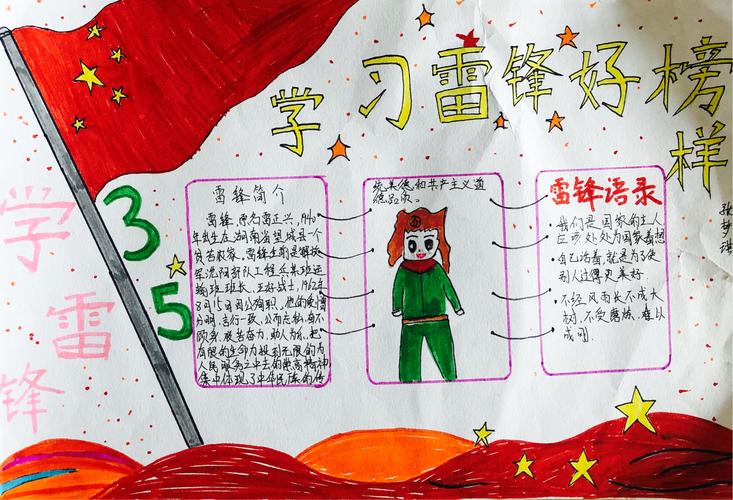 学习雷锋好榜
样
学
雷
锋
3
5
雷锋简介
雷锋,原名雷正兴,1940
年出生在湖南省望城县一个
贫苦农家,雷锋生前是解放
军沈阳部队工程兵某班运
输班班长,五好战士,1962年
8月15日因公殉职,他的爱憎
分明,言行一致,公而忘私,奋不
顾身,艰苦奋力,助人为乐,把
有限的生命力投到无限的为
人民服务之中去的崇高精神
集中体现了中华民族的传
统美德和共产主义道
德品质。
雷锋语录
·我们是国家的主人
应该处处为国家着想
·自己活着,就是为了使
别人过得更美好.
·不经风雨长不成大
树,不受磨炼,难以
成钢.
张梦琪